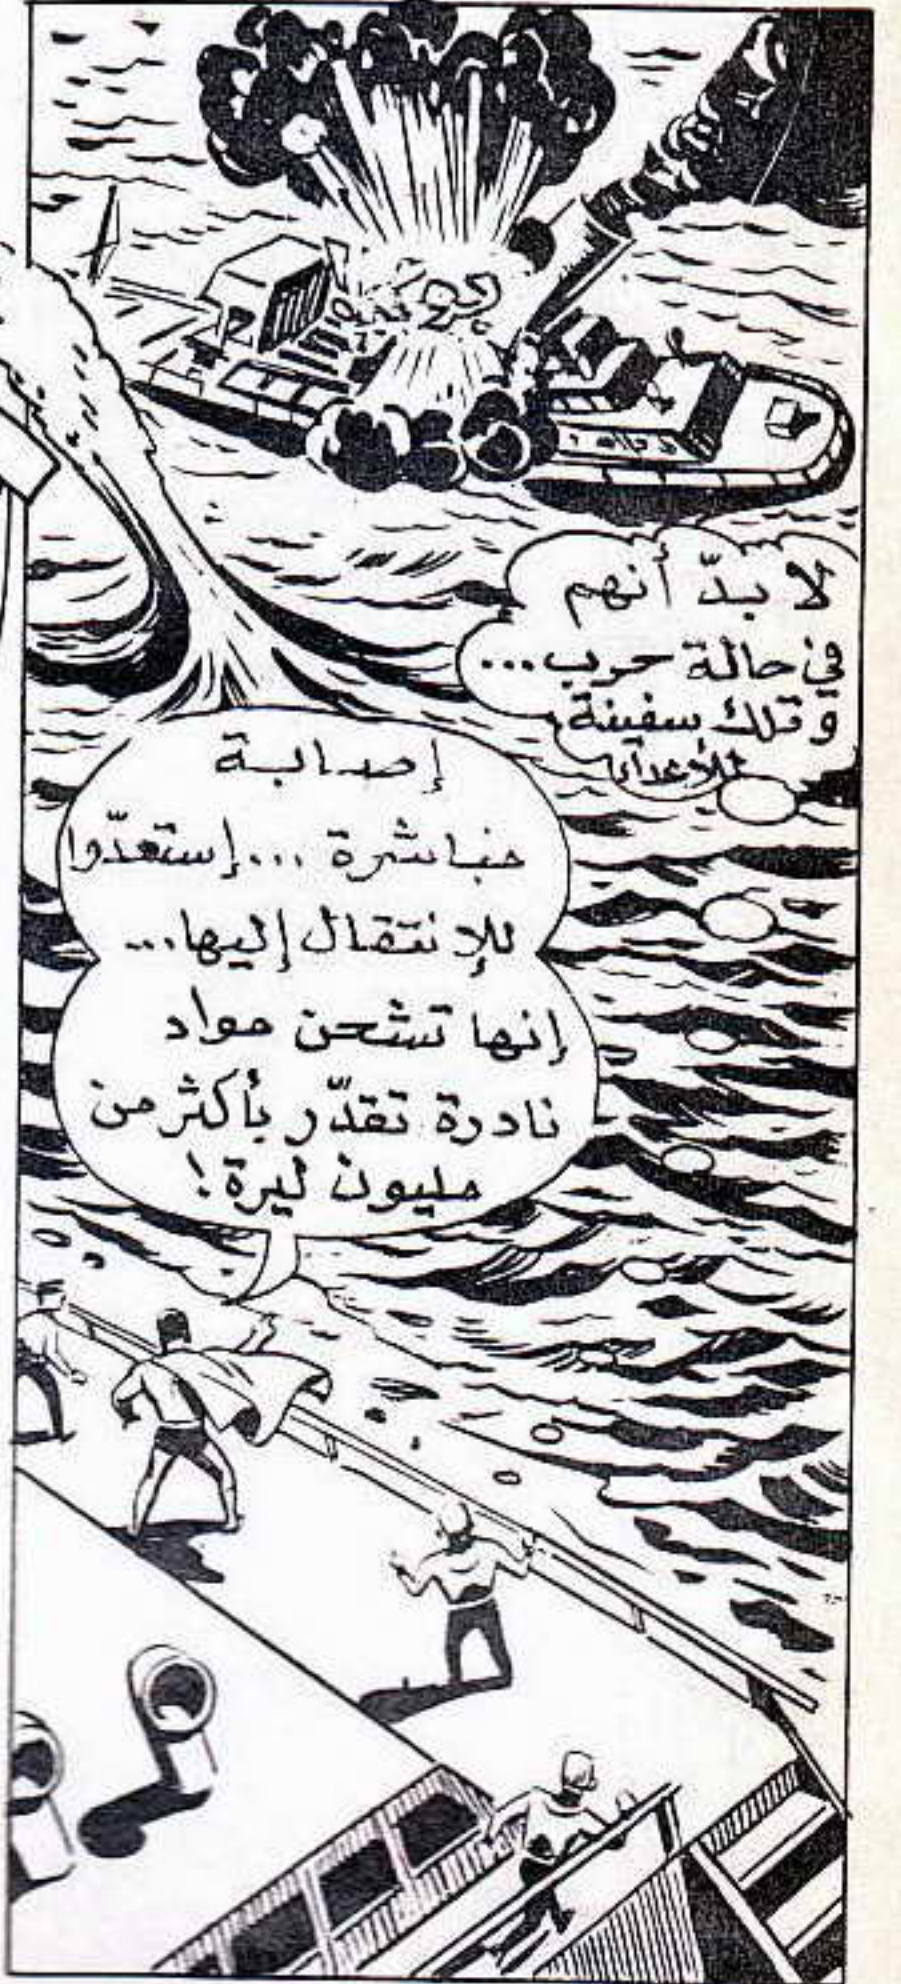 لا بدّ أنهم
في حالة حرب...
وتلك سفينة
للأعداء
إصابة
مباشرة... إستعدّوا
للإنتقال إليها...
إنها تشحن مواد
نادرة تقدّر بأكثر من
مليون ليرة!